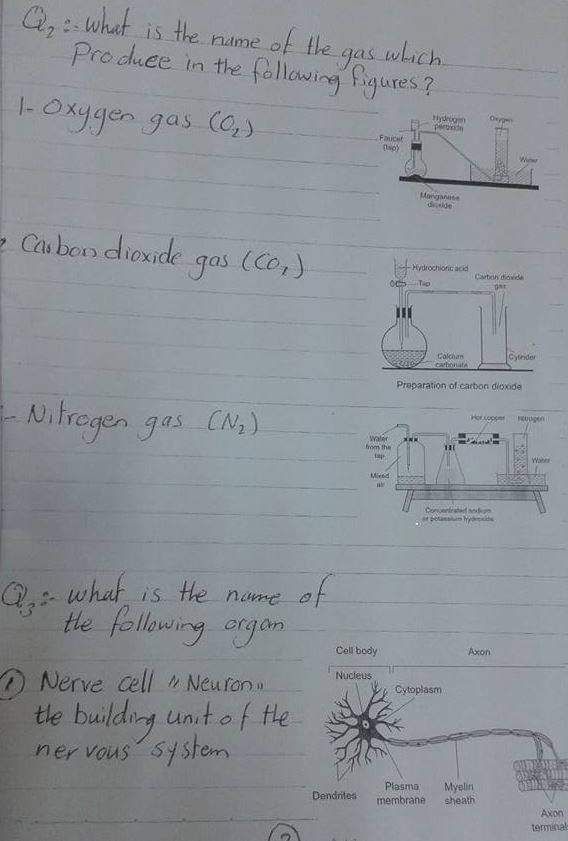 Q2:- what is the name of the gas which
Produce in the following figures?
1- Oxygen gas (O2)
Hydrogen
peroxide
Oxygen
Faucet
(tap)
Water
Manganese
dioxide
Carbon dioxide gas (CO2)
Hydrochloric acid
Carbon dioxide
gas
Tap
Calcium
carbonate
Cylinder
Preparation of carbon dioxide
- Nitrogen gas (N2)
Hot copper
Nitrogen
Water
from the
tap
Water
Mixed
air
Concentrated sodium
or potassium hydroxide
Q3:- what is the name of
the following organ
1 Nerve cell "Neuron"
the building unit of the
nervous system
Cell body
Axon
Nucleus
Cytoplasm
Dendrites
Plasma
membrane
Myelin
sheath
Axon
terminal